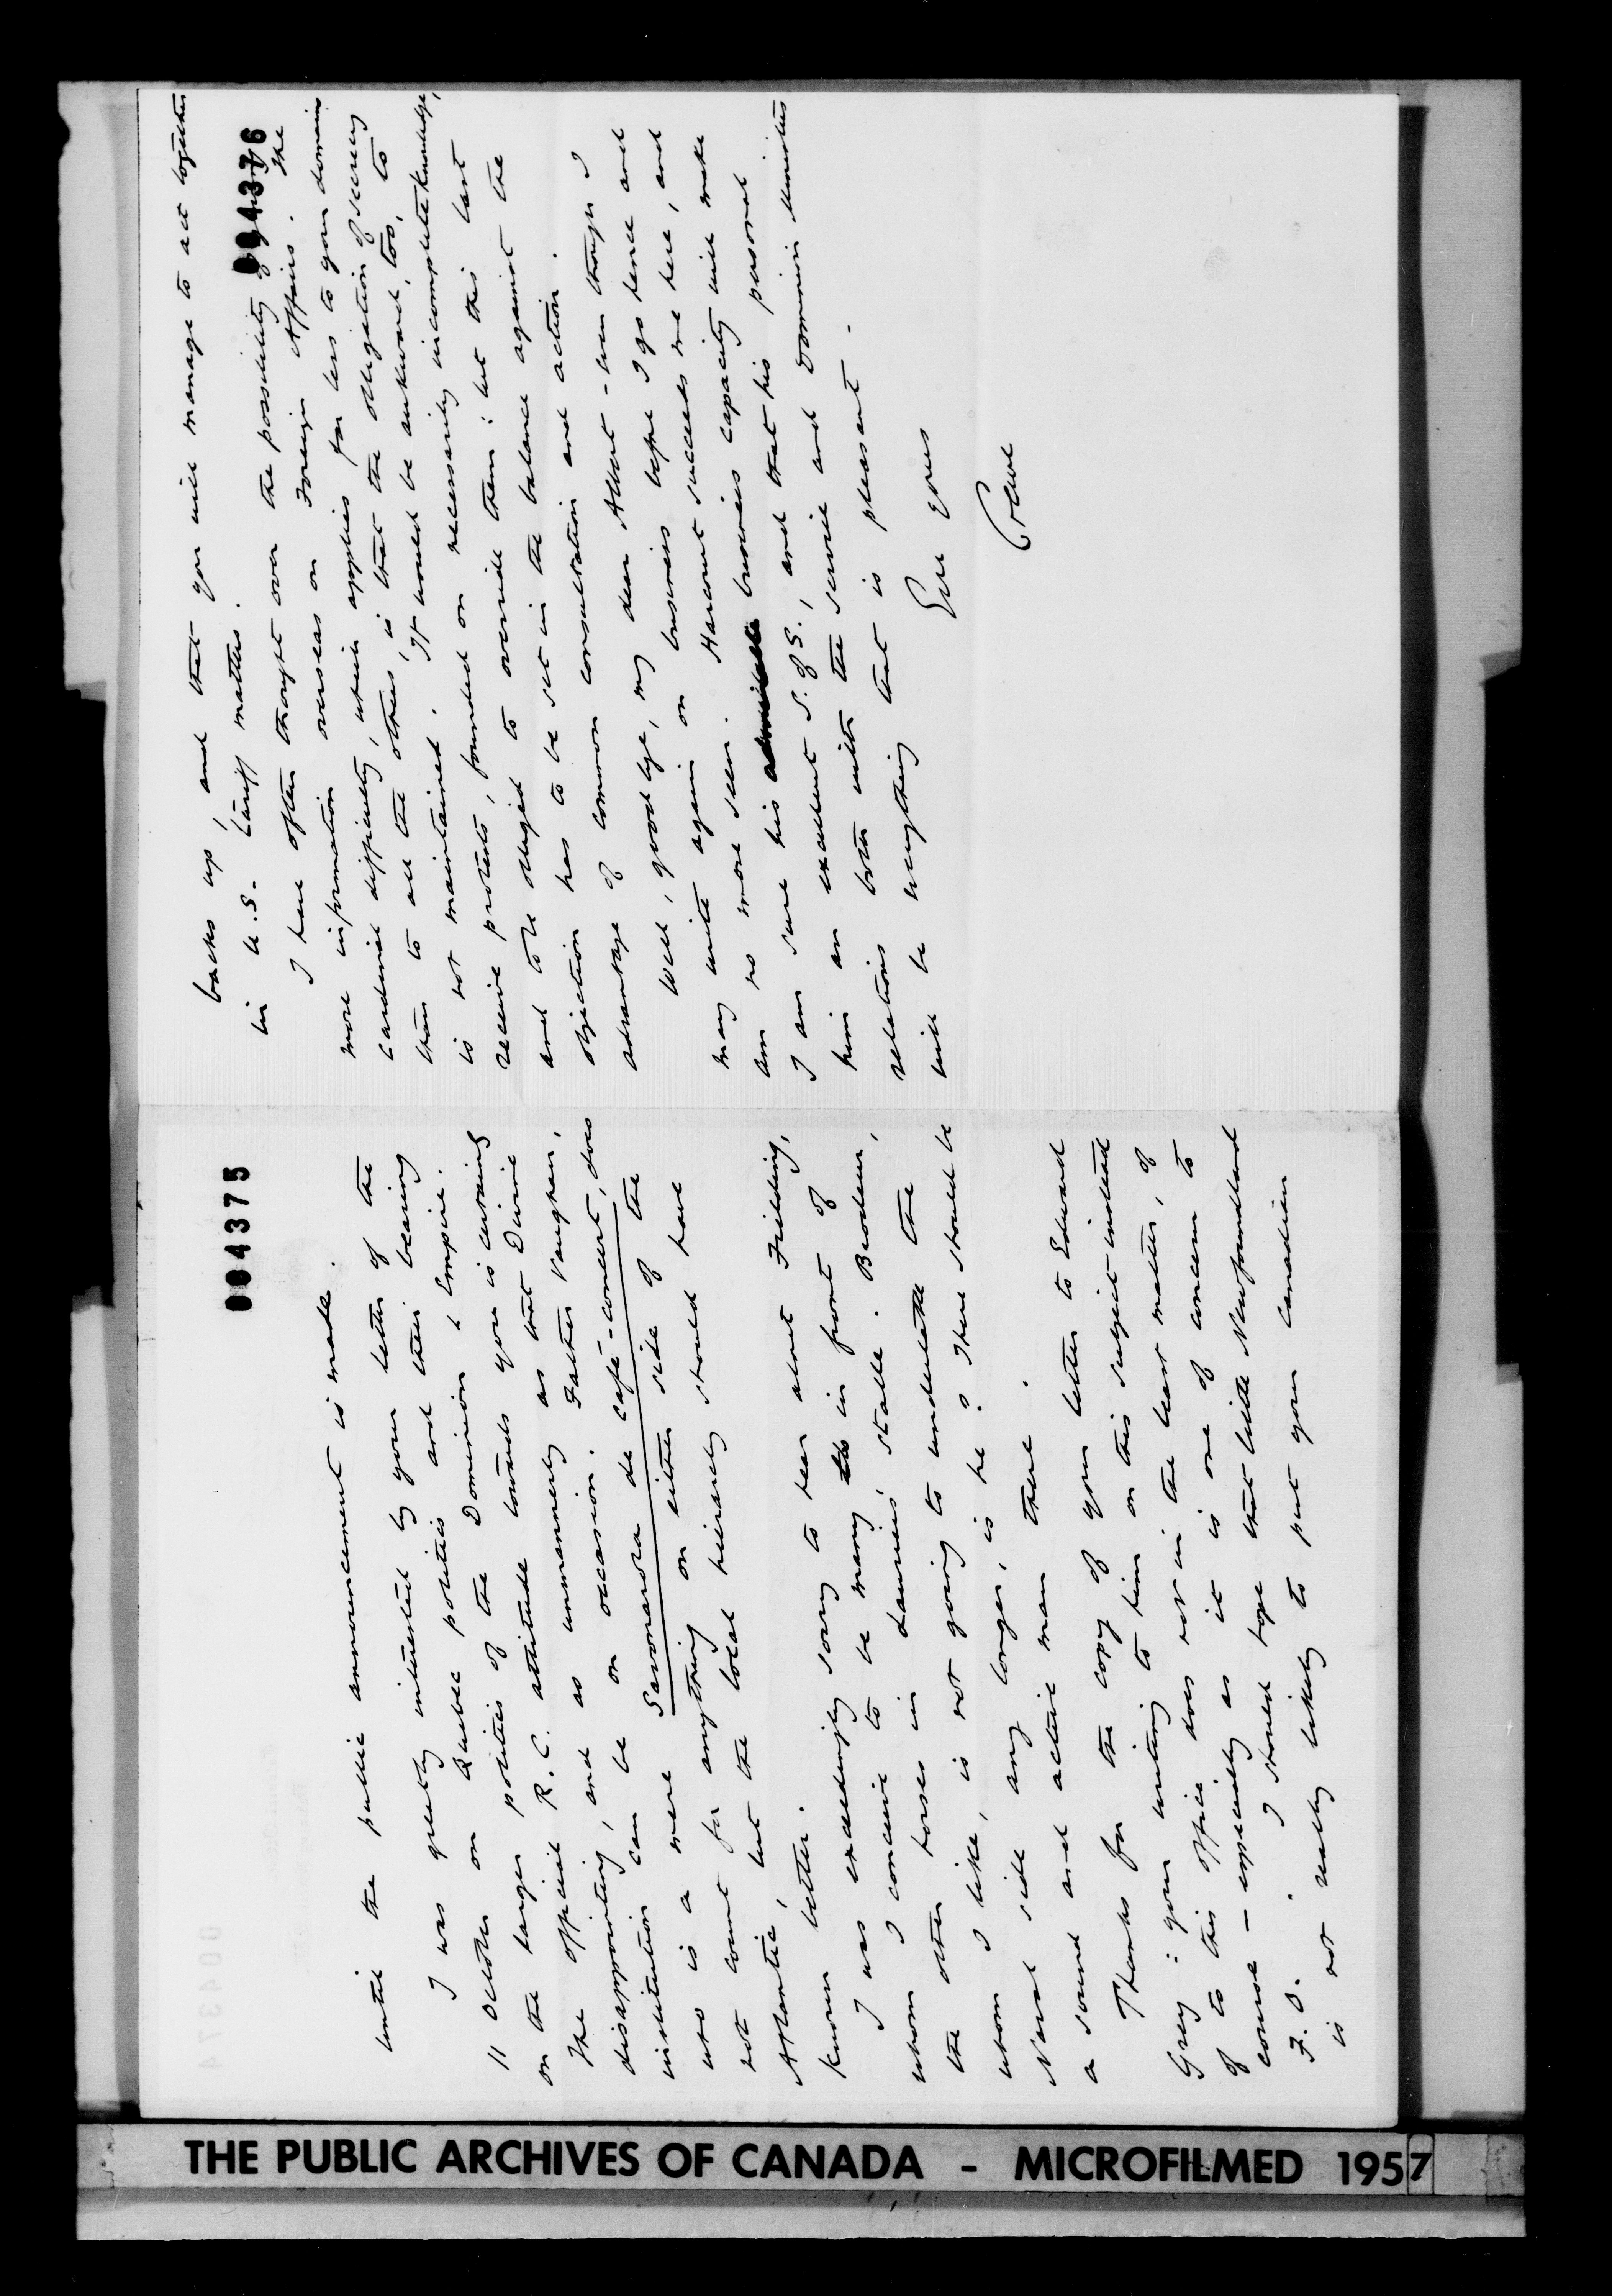 004375
until the public announcement is made.
I was greatly interested by your letter of the
11 October on Quebec politics and their bearing
on the larger politics of the Dominion & Empire.
The official R.C. attitude towards you is certainly
disappointing, and as unmannerly as that Divine
institution can be on occasion. Father Vaughan,
who is a mere Savonarola de café-concert, does
not count for anything on either side of the
Atlantic, but the local hierarchy should have
known better.
I was exceedingly sorry to hear about Fielding,
whom I conceive to be many in front of
the other horses in Laurier's stable. Brodeur,
whom I like, is not going to undertake the
Naval side any longer, is he? There should be
a sound and active man there.
Thanks for the copy of your letter to Edward
Grey: your writing to him on this subject instead
of to this office does not in the least matter, of
course – especially as it is one of concern to
F.O. I should hope that little Newfoundland
is not really likely to put your Canadian
004376
backs up, and that you will manage to act together
in U.S. tariff matters.
I have often thought over the possibility of giving
more information overseas on Foreign Affairs. The
cardinal difficulty, which applies far less to your dominion
than to all the others, is that the obligation of secrecy
is not maintained. It would be awkward, too, to
receive protests, founded on necessarily incomplete knowledge,
and to be obliged to override them: but this last
objection has to be set in the balance against the
advantage of common consultation and action.
Well, goodbye, my dear Albert – even though I
may write again on business before I go hence and
am no more seen. Harcourt succeeds me here, and
I am sure his business capacity will make
him an excellent S. of S., and that his personal
relations both with the service and Dominion Ministers
will be everything that is pleasant.
Ever yours
Crewe
004374
THE PUBLIC ARCHIVES OF CANADA - MICROFILMED 1957